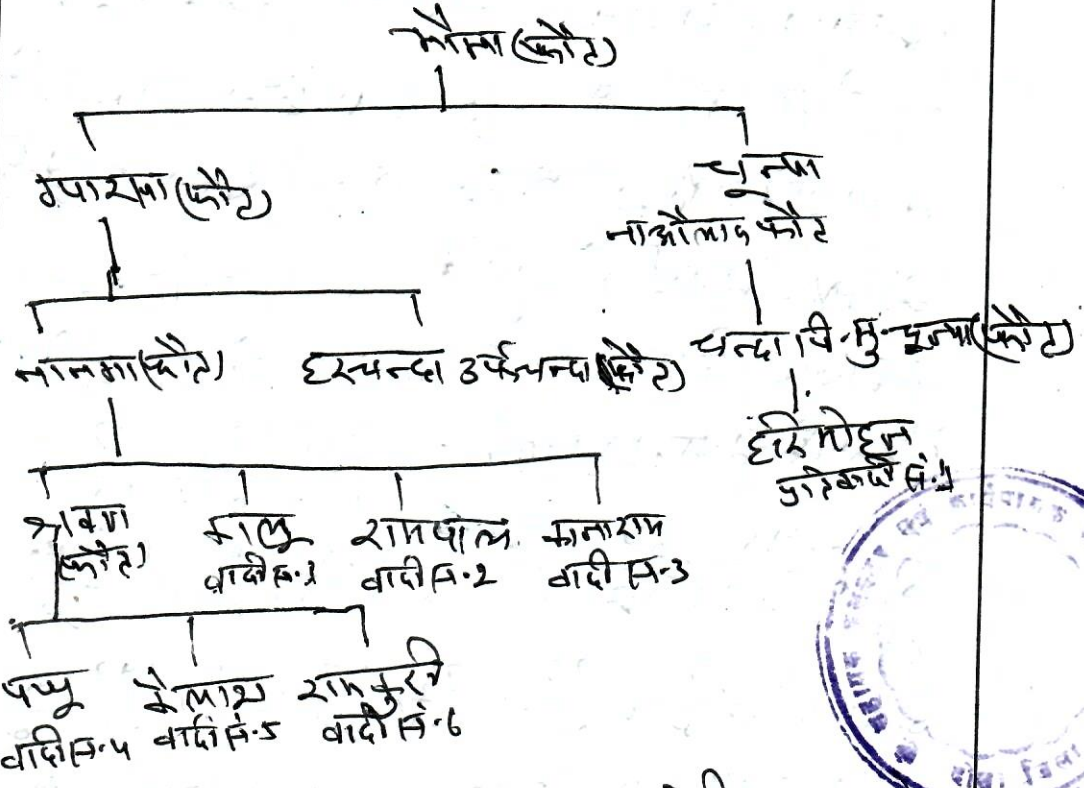 भौमा (फौत)
ग्यारसा (फौत)
चुन्या
नाऔलाद फौत
नानगा (फौत)
हरचन्दा उर्फ चन्दा (फौत)
चन्दा वि.मु. चुन्या (फौत)
हरिमोहन
प्रतिवादी सं.1
श्रवण
(फौत)
कालु
वादी सं.1
रामपाल
वादी सं.2
कानाराम
वादी सं.3
पप्पु
वादी सं.4
कैलाश
वादी सं.5
राम
वादी सं.6